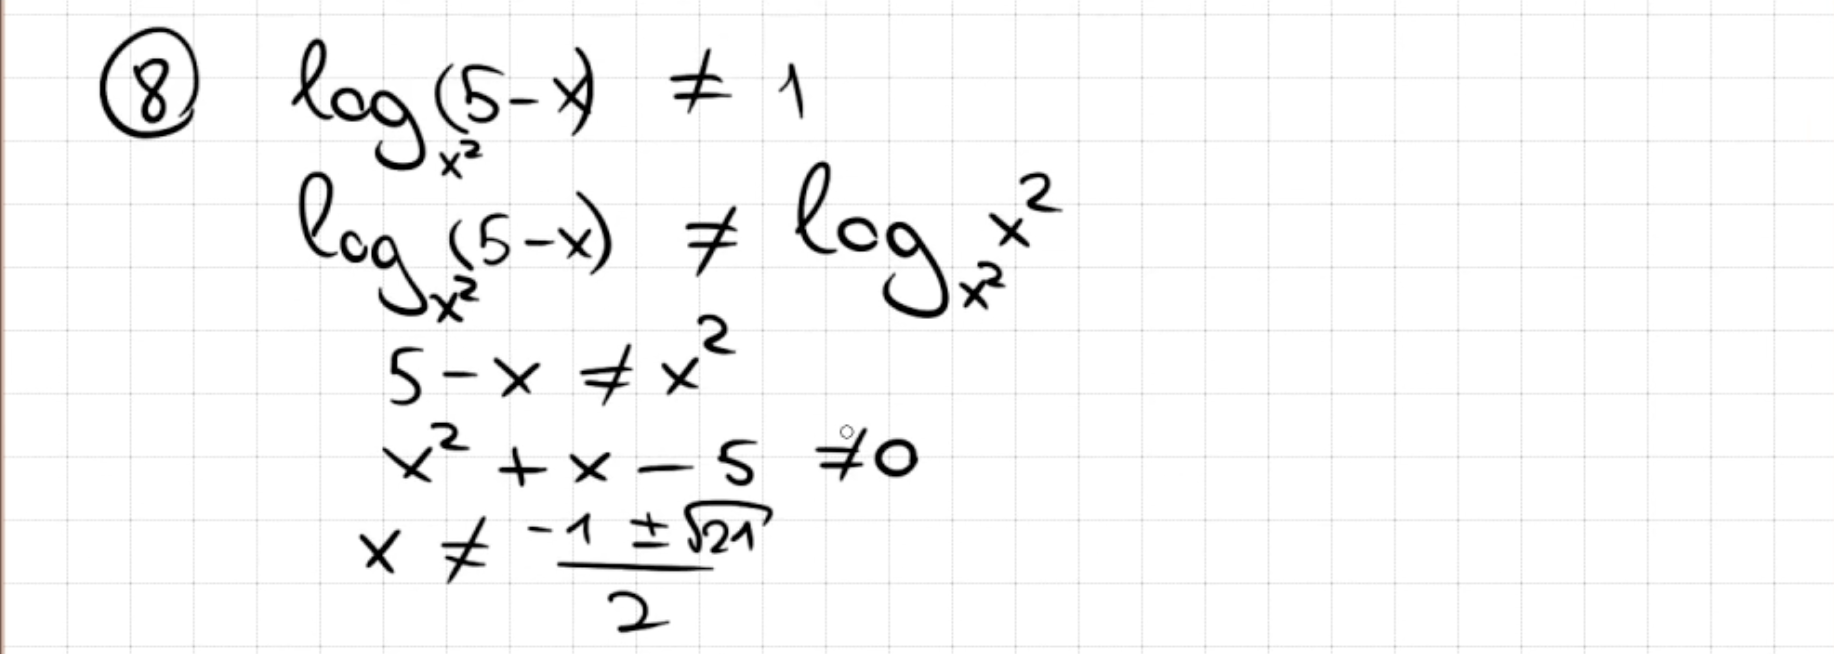 ⑧ log_{x²}(5-x) ≠ 1
log_{x²}(5-x) ≠ log_{x²} x²
5 - x ≠ x²
x² + x - 5 ≠ 0
x ≠ (-1 ± √21)/2